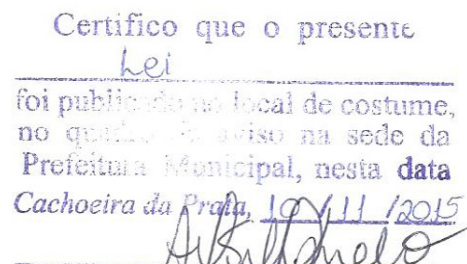 Certifico que o presente
Lei
foi publicado no local de costume,
no quadro de aviso na sede da
Prefeitura Municipal, nesta data
Cachoeira da Prata, 10/11/2015